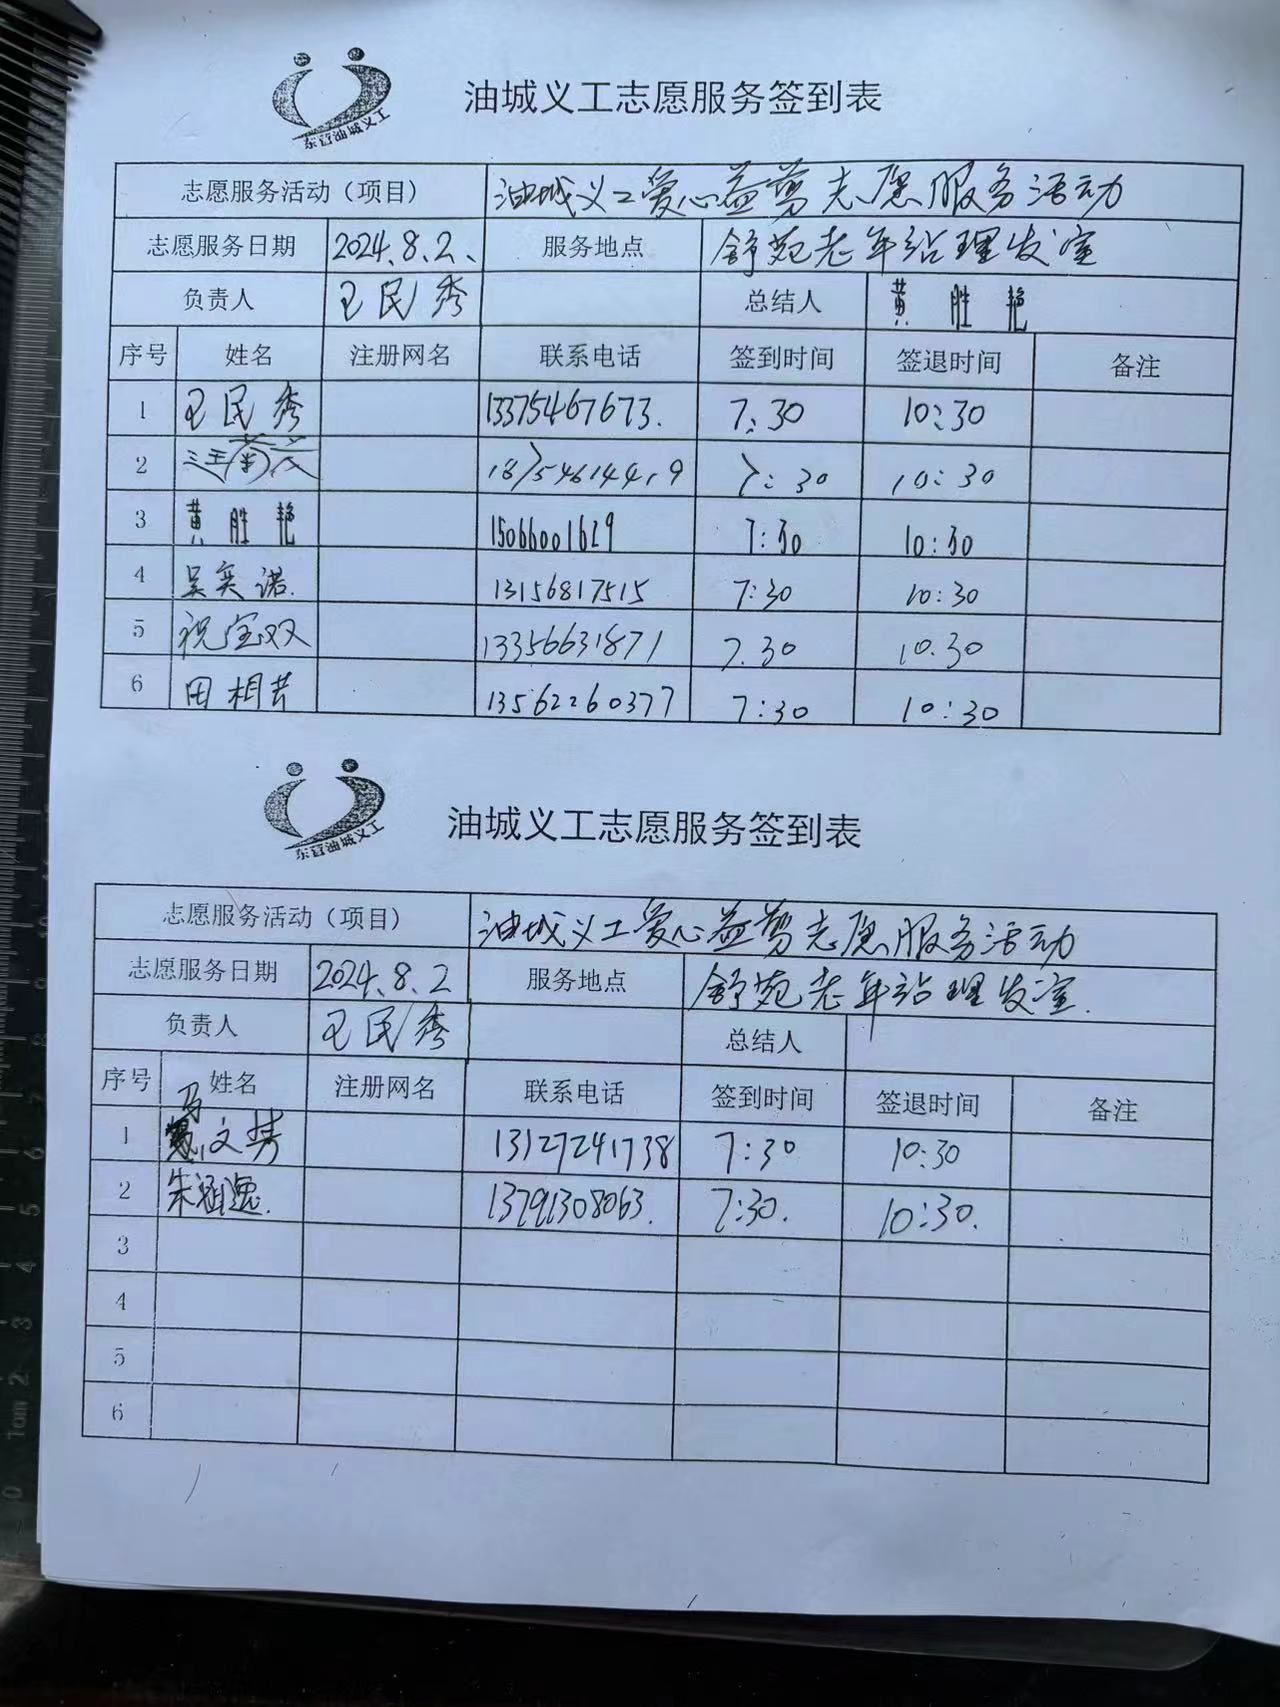 东营油城义工
油城义工志愿服务签到表
志愿服务活动（项目） 油城义工爱心益剪志愿服务活动
志愿服务日期 2024.8.2、 服务地点 舒苑老年站理发室
负责人 王民秀 总结人 黄胜艳
序号 姓名 注册网名 联系电话 签到时间 签退时间 备注
1 王民秀 13375467673. 7:30 10:30
2 18754614419 7:30 10:30
3 黄胜艳 15066001629 7:30 10:30
4 吴奕诺. 13156817515 7:30 10:30
5 祝宝双 13356631871 7.30 10.30
6 田相芸 13562260377 7:30 10:30
东营油城义工
油城义工志愿服务签到表
志愿服务活动（项目） 油城义工爱心益剪志愿服务活动
志愿服务日期 2024.8.2 服务地点 舒苑老年站理发室.
负责人 王民秀 总结人
序号 姓名 注册网名 联系电话 签到时间 签退时间 备注
1 马文 13127241738 7:30 10:30
2 朱涵逸. 13791308063. 7:30. 10:30.
3
4
5
6
0 1cm 2 3 4 5 6 7 8 9 10